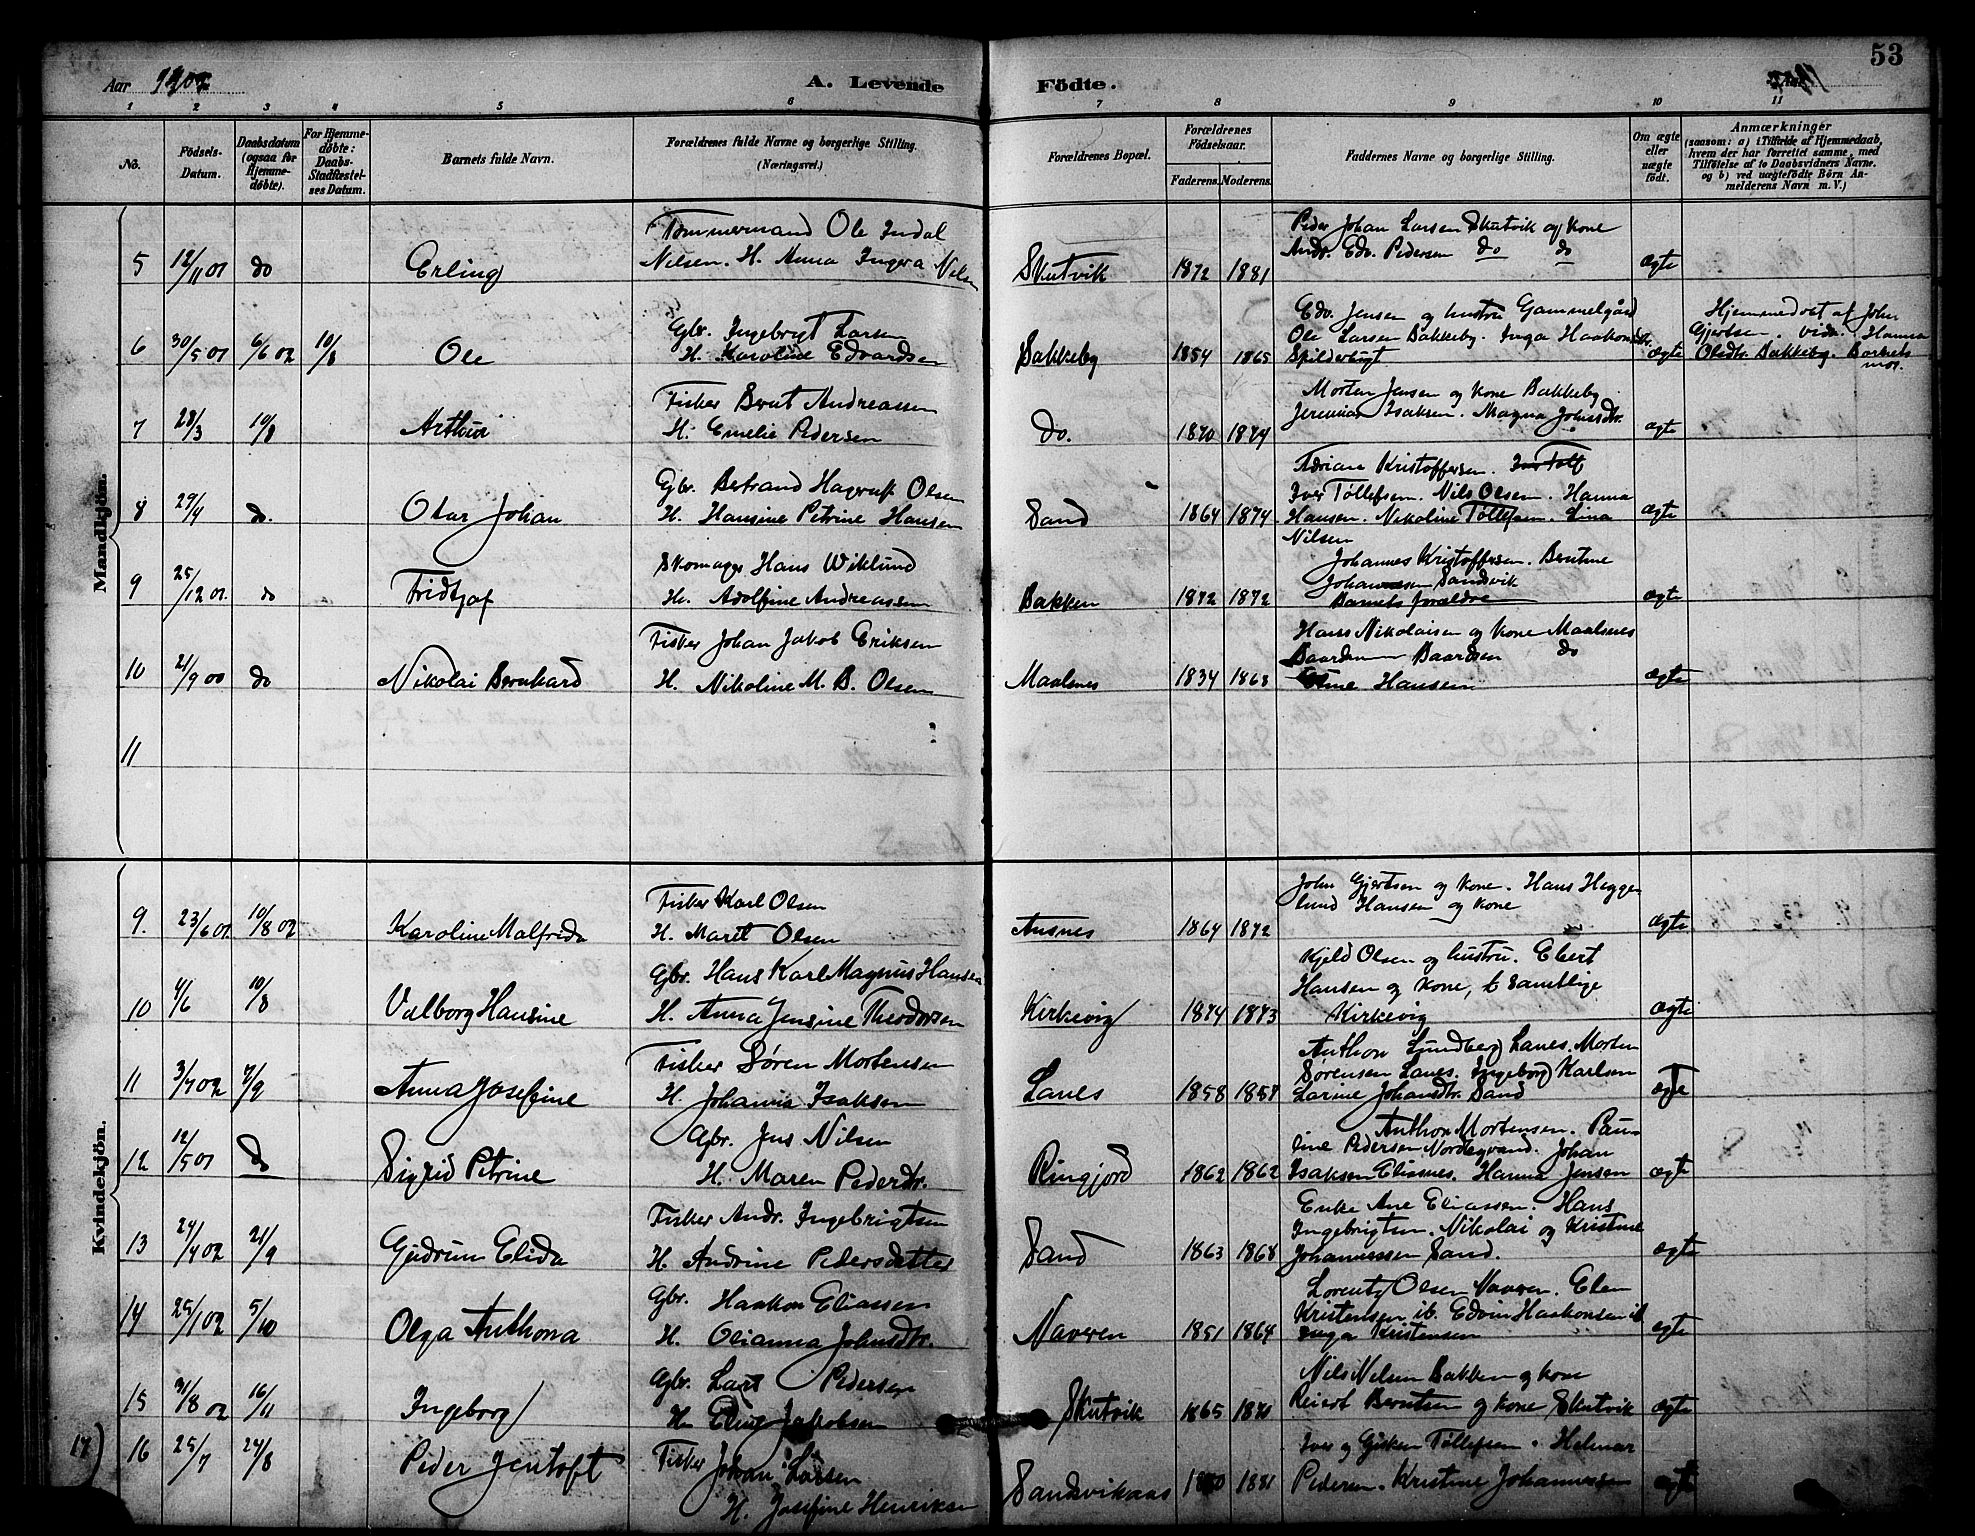 53
Aar 1902 A. Levende Födte. 1902
1 2 3 4 5 6 7 8 9 10 11
No.
Födsels-Datum.
Daabsdatum (ogsaa for Hjemmedøbte).
For Hjemmedøbte: Daabs-Stadfæstelses Datum.
Barnets fulde Navn.
Forældrenes fulde Navne og borgerlige Stilling. (Næringsvei.)
Forældrenes Bopæl.
Forældrenes Fødselsaar.
Faderens. Moderens.
Faddernes Navne og borgerlige Stilling.
Om ægte eller uægte født.
Anmærkninger
(saasom: a) i Tilfælde af Hjemmedaab, hvem der har forrettet samme, med Tilføielse af to Daabsvidners Navne. og b) ved uægtefødte Børn Anmelderens Navn m. V.)
Mandkjön.
5 12/11 01 do Erling Tømmermand Ole Indal
Nilsen. H. Anna Ingera Nilsen Skutvik 1872 1881
Peder Johan Larsen Skutvik og Kone
Andr. Edv. Pedersen do do ægte
6 30/5 01 6/6 02 10/8 Ole Gbr. Ingebrigt Larsen
H. Karoline Edvardsen Bakkeby 1854 1865
Edv. Jensen og hustru Gammelgård
Ole Larsen Bakkeby. Inga Haakonsdtr.
Spilderbugt ægte
Hjemmedøbt af John
Gjertsen. vidn. Hanna
Olsdtr. Bakkeby. Barnets
mor.
7 28/3 10/8 Arthur Fisker Bernt Andreassen
H. Emelie Pedersen do. 1870 1874
Morten Jensen og Kone Bakkeby
Jeremias Isaksen. Magna Johnsdtr. ægte
8 29/4 do. Otar Johan Gbr. Bertrand Hagerup Olsen
H. Hansine Petrine Hansen Sand 1864 1874
Adriane Kristoffersen.
Iver Tøllefsen. Nils Olsen. Hanna
Hansen. Nikoline Tøllefsen. Lina
Nilsen ægte
9 25/12 01. do Fridtjof Skomager Hans Wiklund
H. Adolfine Andreassen Bakken 1872 1872
Johannes Kristoffersen. Berntine
Johannesen Sandvik
Barnets forældre ægte
10 21/9 00 do Nikolai Bernhard Fisker Johan Jakob Eriksen
H. Nikoline M. B. Olsen Maalsnes 1834 1868
Hans Nikolaisen og Kone Maalsnes
Baardsen do
Hansen ægte
11
Kvindekjön.
9. 23/6 01. 10/8 02 Karoline Malfrida Fisker Karl Olsen
H. Maret Olsen Ansnes 1864 1872
John Gjertsen og Kone. Hans Heggelund
Hansen og Kone ægte
10 4/6 10/8 Valborg Hansine Gbr. Hans Karl Magnus Hansen
H. Anna Jensine Theodorsen Kirkevig 1874 1873
Kjeld Olsen og hustru. Ebert
Hansen og Kone, samtlige
Kirkevig ægte
11 3/7 02 7/9 Anna Josefine Fisker Søren Mortensen
H. Johanna Isaksen Lanes 1858 1858
Anthon Lundberg Lanes. Morten
Sørensen Lanes. Ingeborg Karlsen
Larine Johansdtr. Sand ægte
12 12/5 01 do Sigrid Petrine Gbr. Jens Nilsen
H. Maren Pedersdtr. Ringjord 1862 1862
Anthon Mortensen. Pauline
Pedersen Nordegvand. Johan
Isaksen Eliasnes. Hanna Jensen ægte
13 24/4 02 21/9 Gudrun Elida Fisker Andr. Ingebrigtsen
H. Andrine Pedersdatter Sand 1863 1868
Enke Ane Eliassen. Hans
Ingebrigtsen. Nikolai og Kristine
Johannessen Sand. ægte
14 25/1 02 5/10 Olga Anthona Gbr. Haakon Eliassen
H. Olianna Johnsdtr. Navren 1851 1864
Lorentz Olsen Navren. Elen
Kristensen ib. Edvin Haakonsen ib
Inga Kristensen ægte
15 31/8 02 16/11 Ingeborg Gbr. Lars Pedersen
H. Eline Jakobsen Skutvik 1865 1871
Nils Nilsen Bakken og kone
Reiert Berntsen og kone Skutvik ægte
17)
16 25/7 24/8 Peder Jentoft Fisker Johan Larsen
H. Josefine Henriksen Sandvikaas 1881
Iver og Gisken Tøllefsen. Helmar
Pedersen. Kristine Johannessen ægte